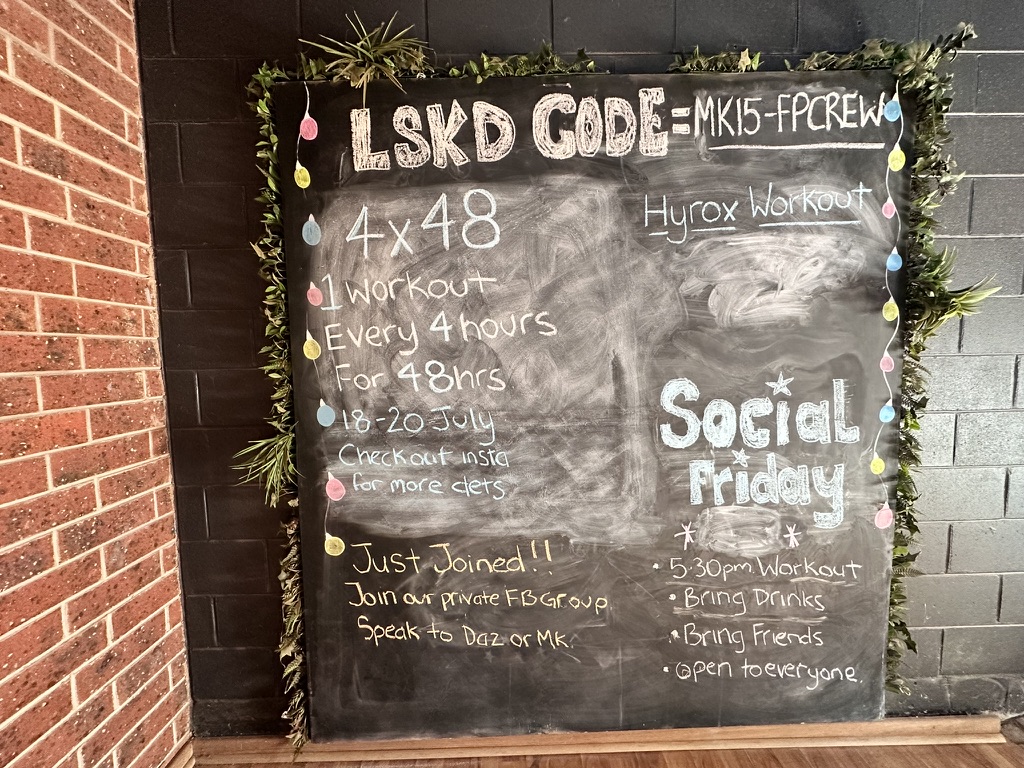 LSKD CODE = MK15-FPCREW
4x48
1 workout
Every 4 hours
For 48hrs
18-20 July
Checkout insta
for more dets
Just Joined!!
Join our private FB Group
Speak to Daz or Mk.
Hyrox Workout
Social
Friday
• 5:30pm Workout
• Bring Drinks
• Bring Friends
• Open to everyone.